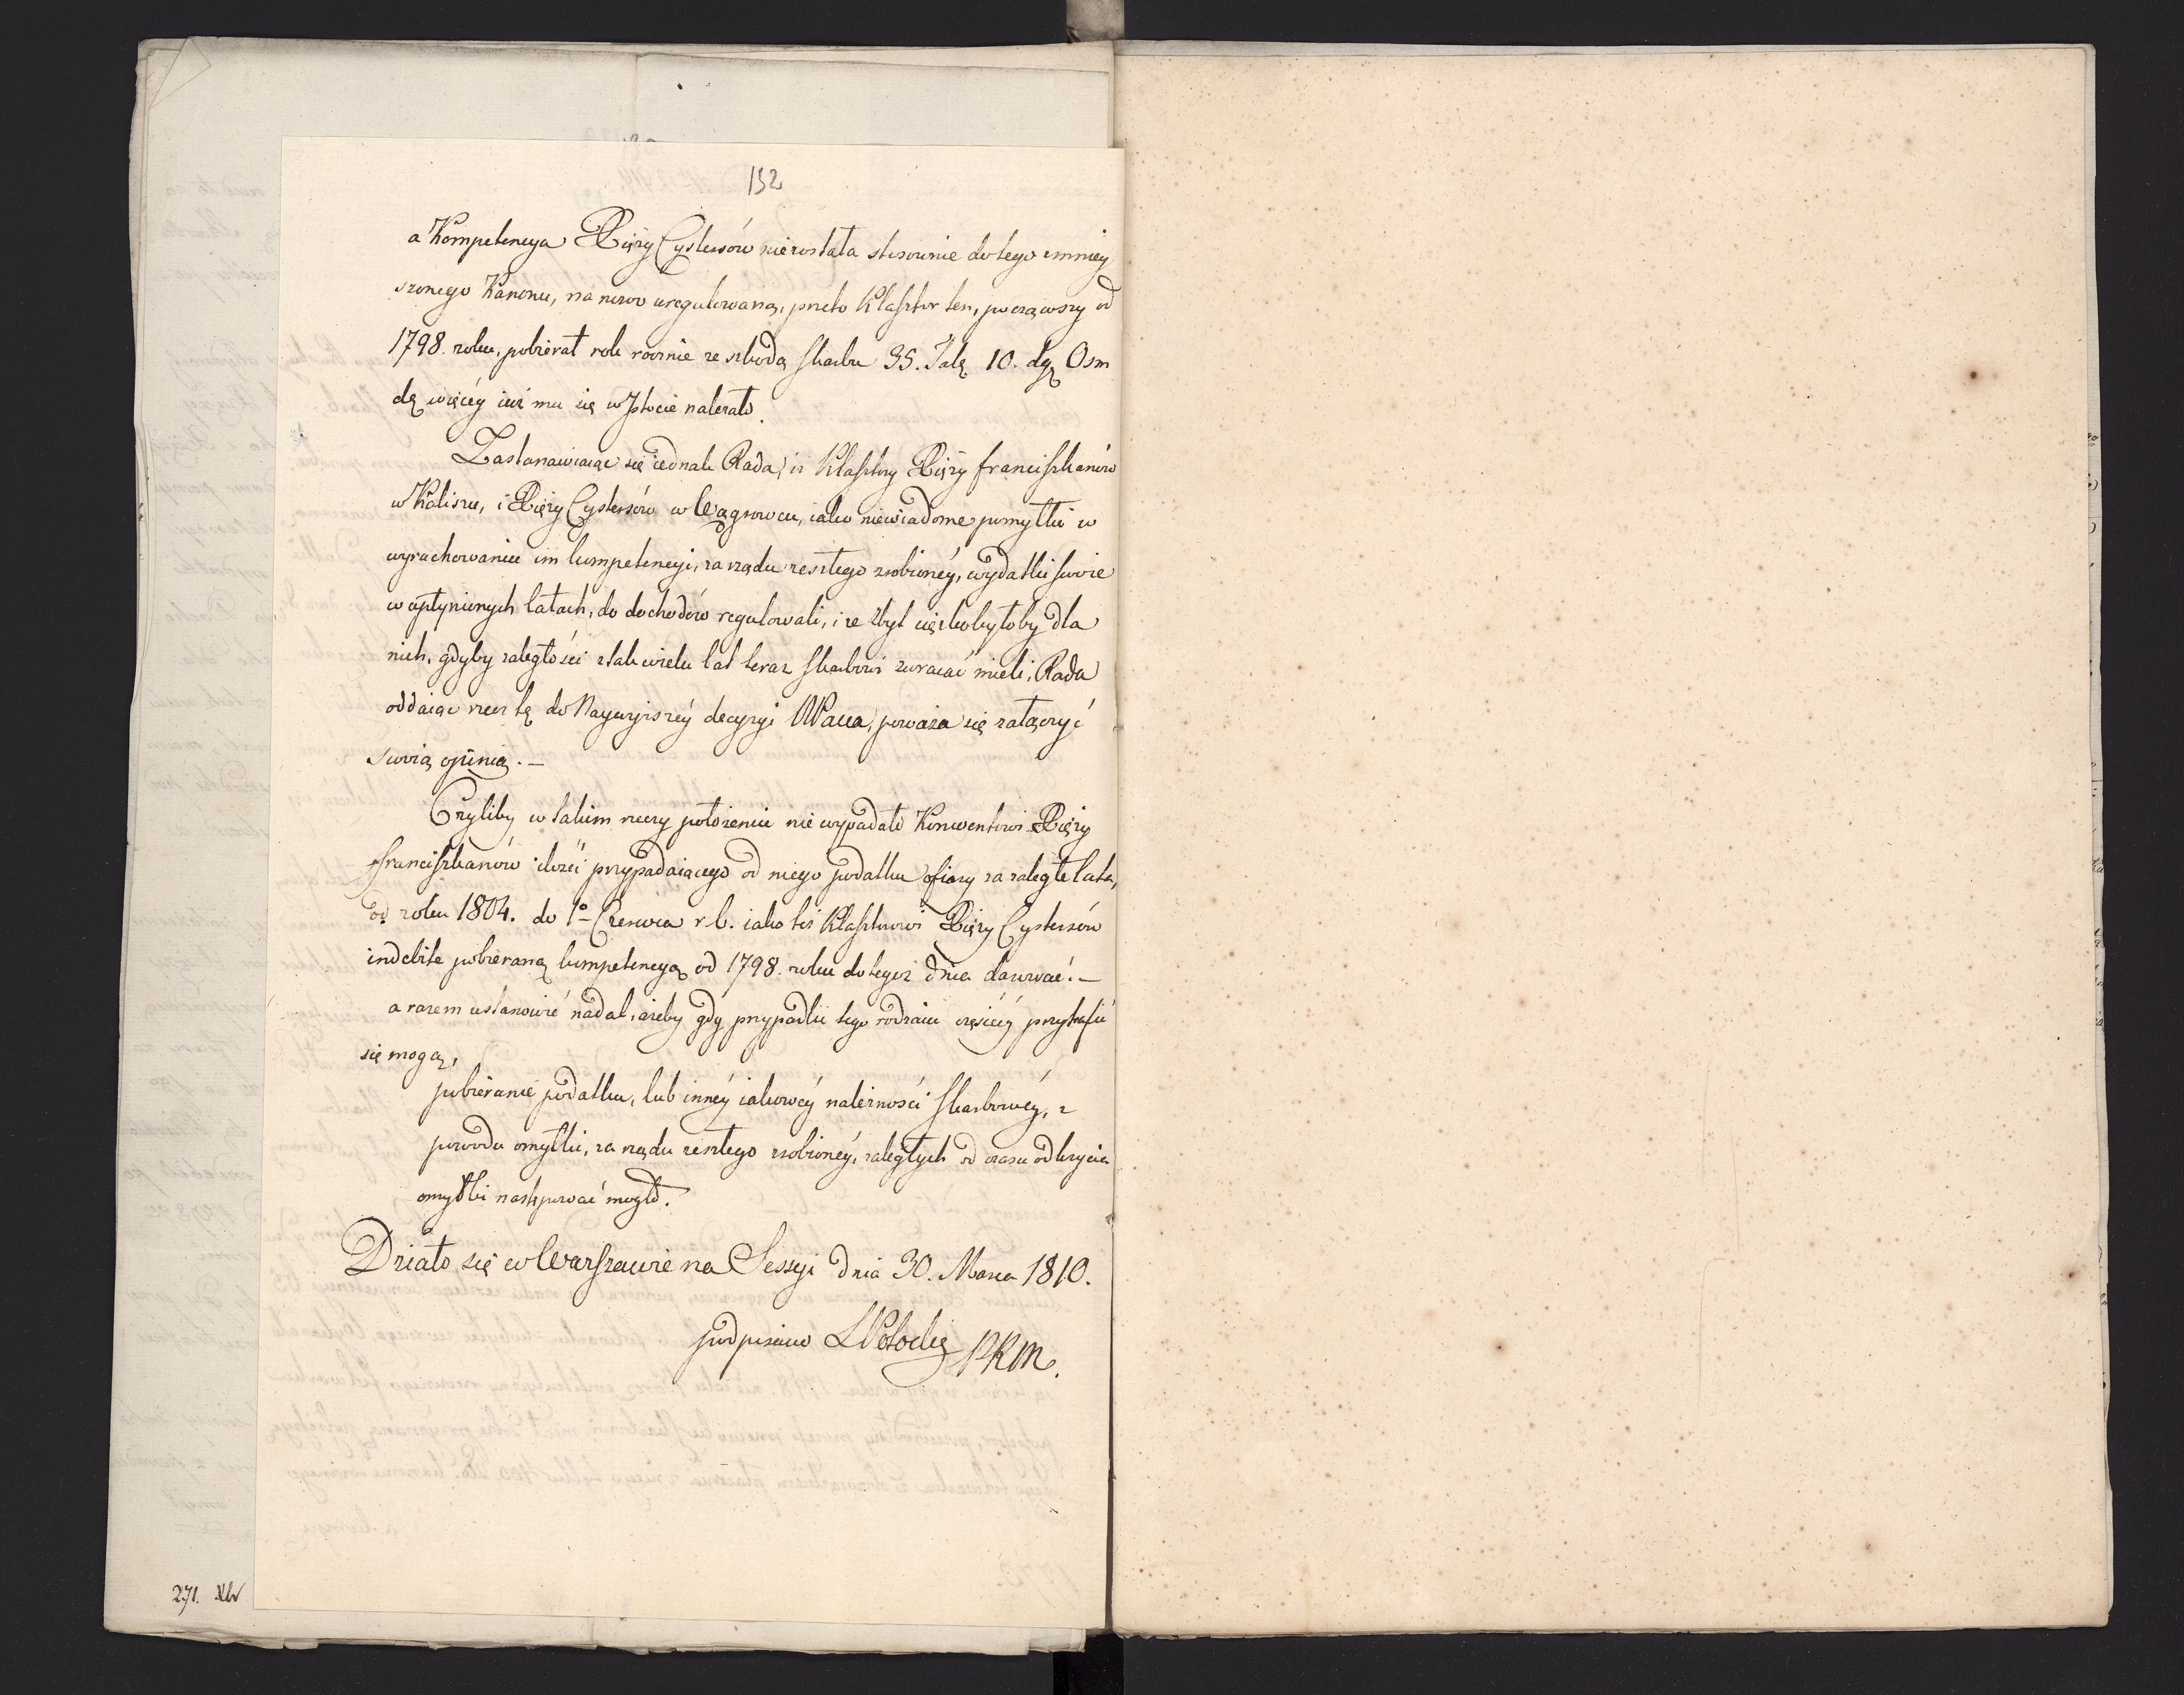 152
a Kompetencya XXięży Cystersów nie została stosownie do tego zmniey
szonego Kanonu, na nowo uregulowaną, przeto Klasztor ten, począwszy od
1798. roku, pobierał rok rocznie ze szkodą skarbu 35. Talę 10. dgę Osm
dę więcéy iuż mu się w Istocie należało.
Zastanawiaiąc się iednak Rada, iż Klasztory XXięży franciszkanów
w Kaliszu, i XXięży Cystersów w Wągrowcu, iako niewiadome pomyłki w
wyrachowaniu im kompetencyi, za rządu zeszłego zrobionéy, wydatki swoie
w upłynionych latach, do dochodów regulowali, i że zbyt ciężko byłoby dla
nich, gdyby zaległości z tak wielu lat teraz skarbowi zwracać mieli, Rada
oddaiąc rzecz tę do Naywyższéy decyzyi WPana, poważa się załączyć
swoią opinią. —
Czyliby w takim rzeczy położeniu nie wypadało Konwentowi XXięży
franciszkanów ilości przypadaiącego od niego podatku ofiary za zaległe lata,
od roku 1804. do 1o Czerwca r. b. iako też Klasztorowi XXięży Cystersów
indebite pobieraną kompetencyą od 1798. roku do tegoż dnia darować. —
a razem ustanowić nadal, ażeby gdy przypadki tego rodzaiu częściéy przytrafić
się mogą,
pobieranie podatku, lub innéy iakowéy należności skarbowéy, z
powodu omyłki, za rządu zeszłego zrobionéy, zaległych od czasu odkrycia
omyłki następować mogło.
Działo się w Warszawie na Sessyi dnia 30. Marca 1810.
podpisano SPotocki PRM.
271.